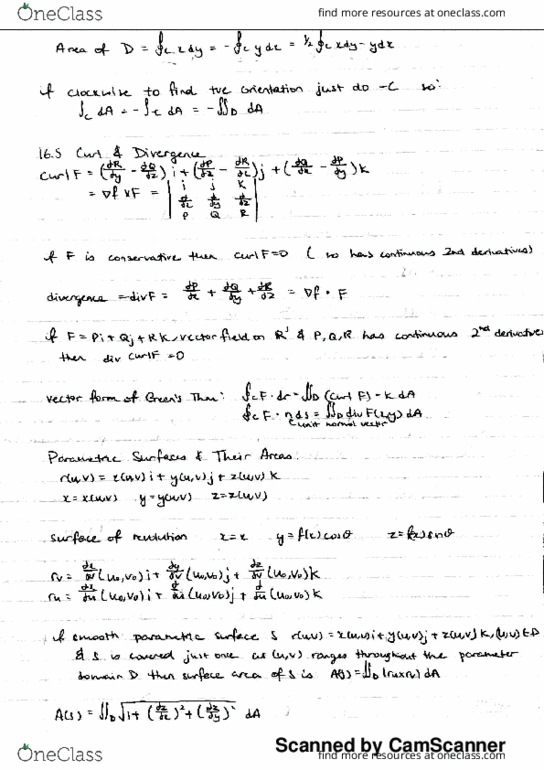 OneClass
find more resources at oneclass.com
Area of D = ∮c x dy = -∮c y dx = ½ ∮c x dy - y dx
if clockwise to find +ve orientation just do -C so:
∫c dA = -∫-c dA = -∬D dA
16.5 Curl & Divergence
curl F = (dR/dy - dQ/dz) i + (dP/dz - dR/dx) j + (dQ/dx - dP/dy) k
= ∇f × F = | i j k
d/dx d/dy d/dz
P Q R |
if F is conservative then curl F = 0 ( so has continuous 2nd derivatives)
divergence = div F = dP/dx + dQ/dy + dR/dz = ∇f · F
if F = Pi + Qj + Rk, vector field on R³ & P, Q, R has continuous 2nd derivative
then div curl F = 0
vector form of Green's Thm: ∮c F · dr = ∬D (curl F) · k dA
∮c F · n ds = ∬D div F(x,y) dA
unit normal vector
Parametric Surfaces & Their Areas:
r(u,v) = x(u,v) i + y(u,v) j + z(u,v) k
x = x(u,v) y = y(u,v) z = z(u,v)
surface of revolution x = x y = f(x) cosθ z = f(x) sinθ
rv = dx/dv (u₀,v₀) i + dy/dv (u₀,v₀) j + dz/dv (u₀,v₀) k
ru = dx/du (u₀,v₀) i + d/du (u₀,v₀) j + d/du (u₀,v₀) k
if smooth parametric surface S r(u,v) = x(u,v) i + y(u,v) j + z(u,v) k, (u,v) ∈ D
& S is covered just one as (u,v) ranges throughout the parameter
domain D then surface area of S is A(S) = ∬D |ru x rv| dA
A(S) = ∬D √(1 + (dz/dx)² + (dz/dy)²) dA
Scanned by CamScanner
OneClass
find more resources at oneclass.com